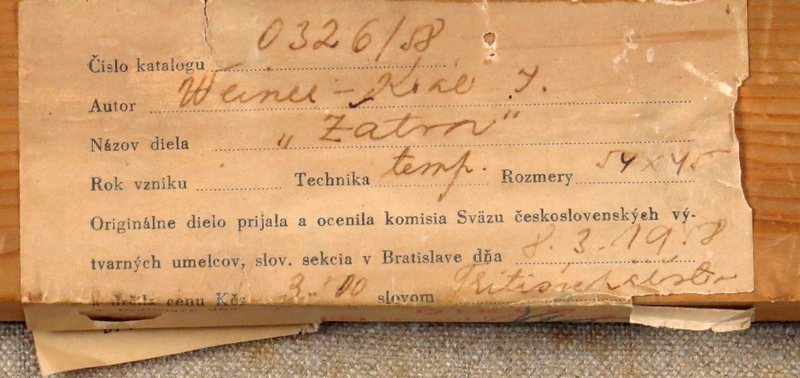 Číslo katalogu 0326/58
Autor Weiner-Kráľ J.
Názov diela „Zátvor"
Rok vzniku Technika temp. Rozmery 54x45
Originálne dielo prijala a ocenila komisia Sväzu československých vý-
tvarných umelcov, slov. sekcia v Bratislave dňa 8.3.1958
cenu Kčs slovom